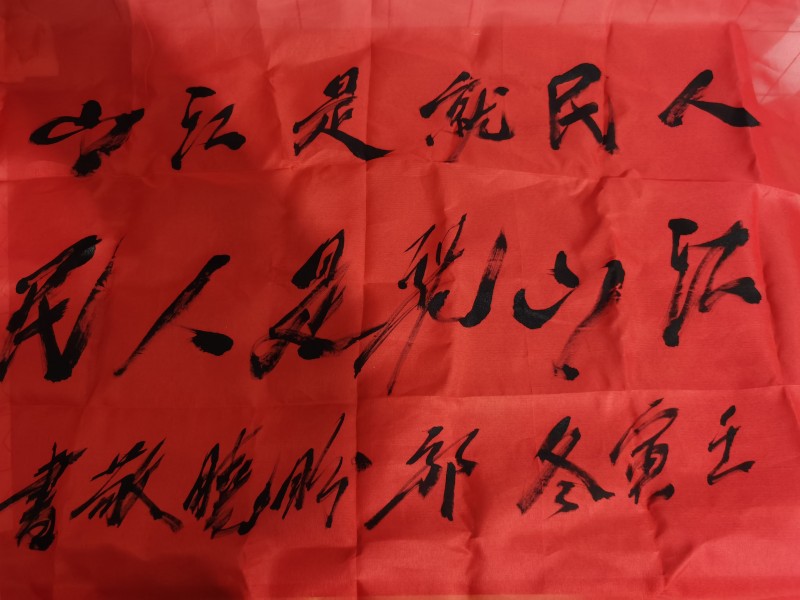 人民就是江山
江山就是人民
壬寅冬 郭曉敬書